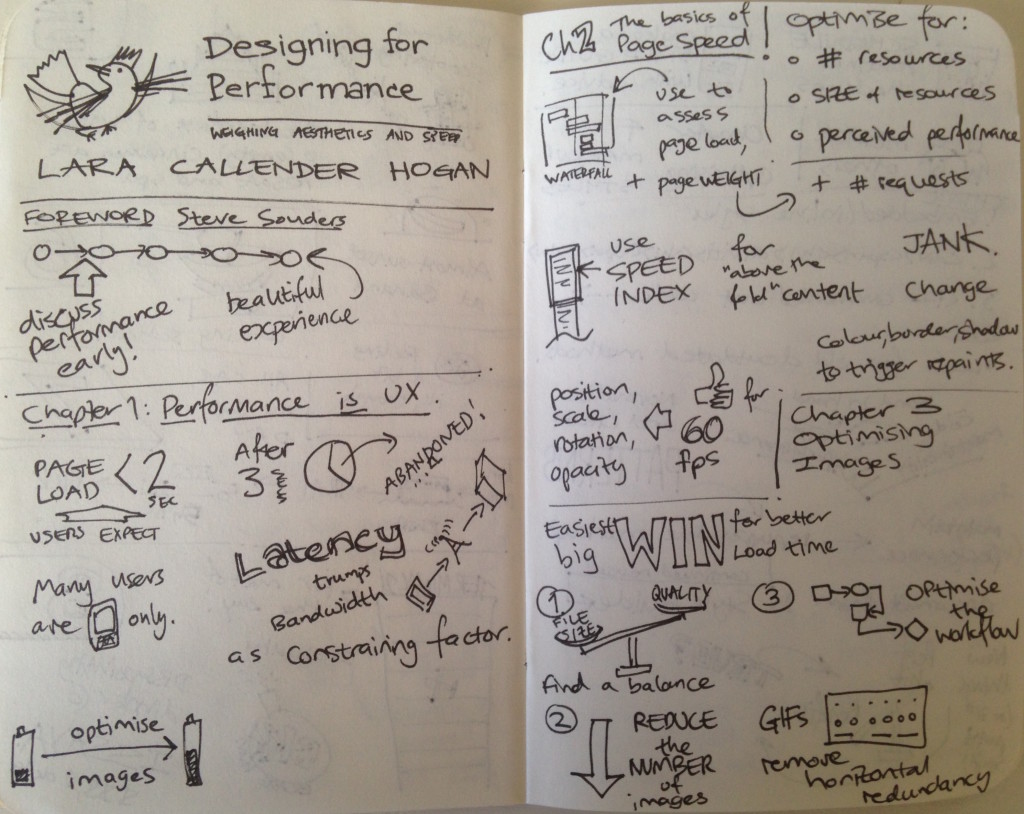 Designing for
Performance
WEIGHING AESTHETICS AND SPEED
LARA CALLENDER HOGAN
FOREWORD Steve Souders
discuss
performance
early!
beautiful
experience
Chapter 1: Performance is UX.
PAGE
LOAD < 2
SEC
USERS EXPECT
After
3 secs
ABANDONED!
Many users
are only.
Latency
trumps
Bandwidth
as constraining factor.
optimise
images
Ch2 The basics of
Page Speed
use to
assess
page load,
WATERFALL + page WEIGHT
Optimise for:
# resources
SIZE of resources
perceived performance
+ # requests
use
SPEED
INDEX
for
"above the
fold" content
JANK.
Change
colour, border, shadow
to trigger repaints.
position,
scale,
rotation,
opacity
for
60
fps
Chapter 3
Optimising
Images
Easiest
big
WIN
for better
Load time
1
FILE
SIZE
QUALITY
Find a balance
2
REDUCE
the
NUMBER
of
images
3
Optimise
the
workflow
GIFs
remove
horizontal
redundancy